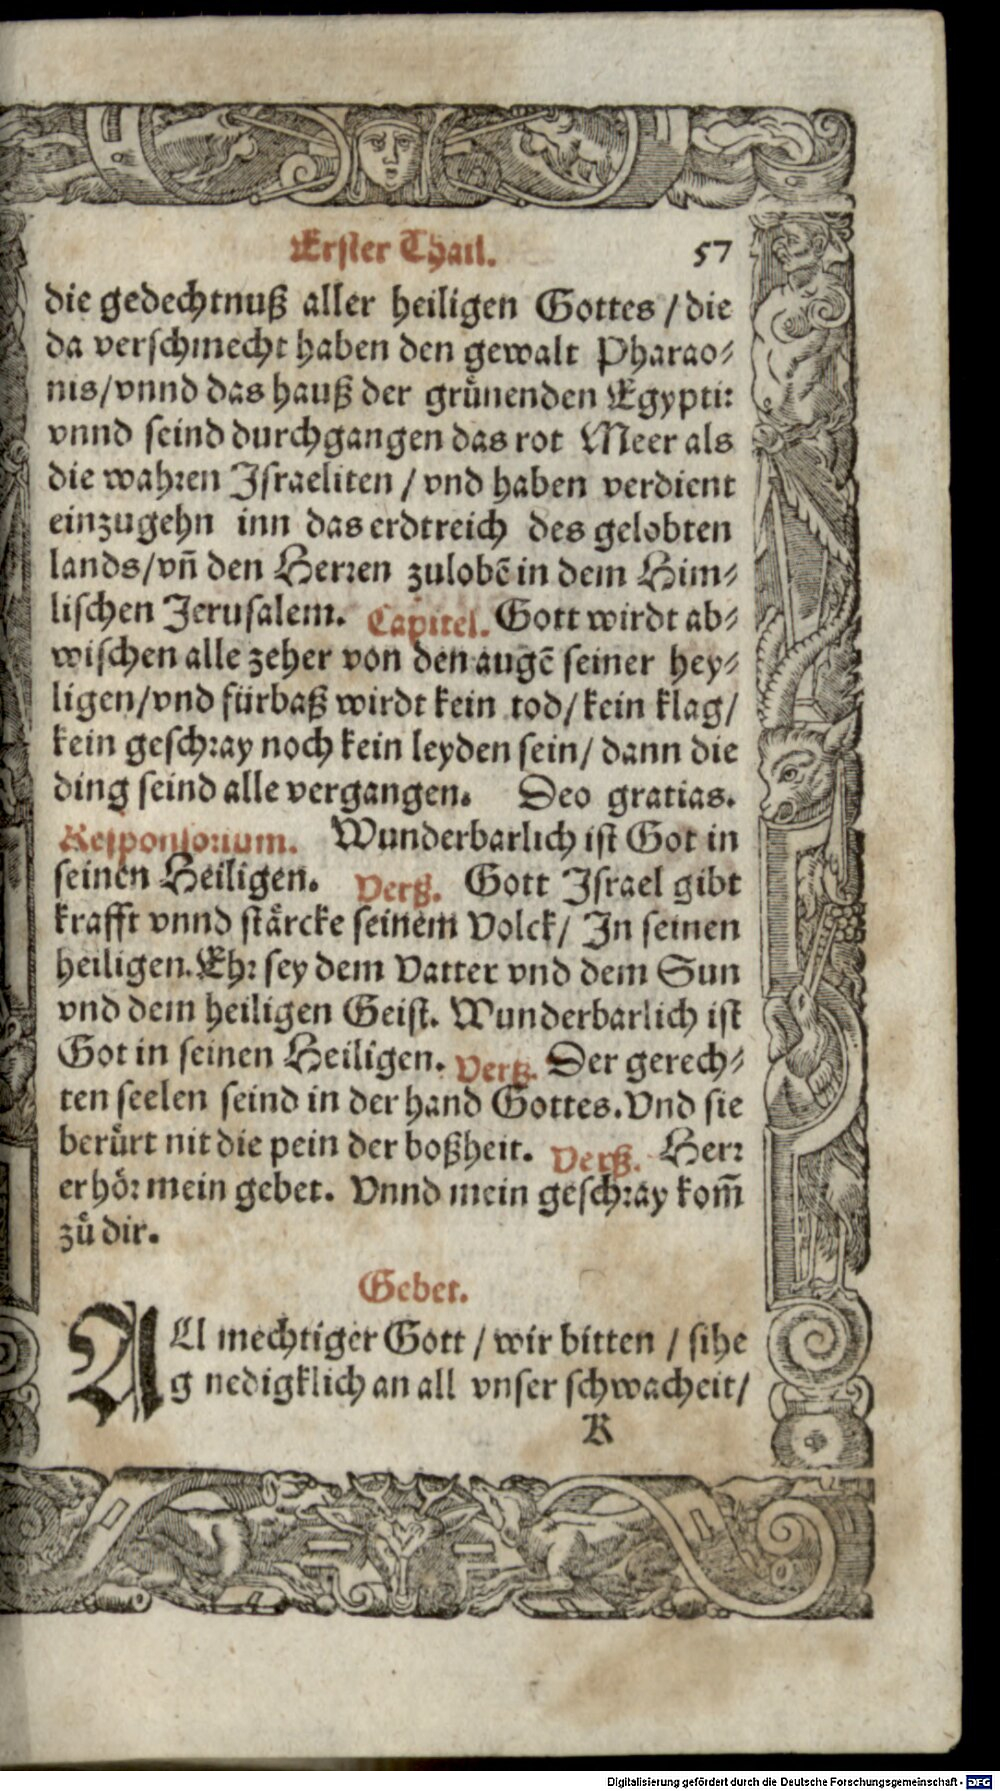 Erster Thail. 57
die gedechtnuß aller heiligen Gottes / die
da verschmecht haben den gewalt Pharao⸗
nis/vnnd das hauß der grůnenden Egypti:
vnnd seind durchgangen das rot Meer als
die wahren Israeliten / vnd haben verdient
einzugehn inn das erdtreich des gelobten
lands/vñ den Herren zulobē in dem Him⸗
lischen Jerusalem. Capitel. Gott wirdt ab⸗
wischen alle zeher von den augē seiner hey⸗
ligen/vnd fürbaß wirdt kein tod/ kein klag/
kein geschray noch kein leyden sein/ dann die
ding seind alle vergangen. Deo gratias.
Responsorium. Wunderbarlich ist Got in
seinen Heiligen. Verß. Gott Israel gibt
krafft vnnd stärcke seinem Volck/ In seinen
heiligen. Ehr sey dem Vatter vnd dem Sun
vnd dem heiligen Geist. Wunderbarlich ist
Got in seinen Heiligen. Verß. Der gerech⸗
ten seelen seind in der hand Gottes. Vnd sie
berůrt nit die pein der boßheit. Verß. Herr
erhör mein gebet. Vnnd mein geschray kom̃
zů dir.
Gebet.
ALl mechtiger Gott / wir bitten / sihe
g nedigklich an all vnser schwacheit/
K
Digitalisierung gefördert durch die Deutsche Forschungsgemeinschaft - DFG